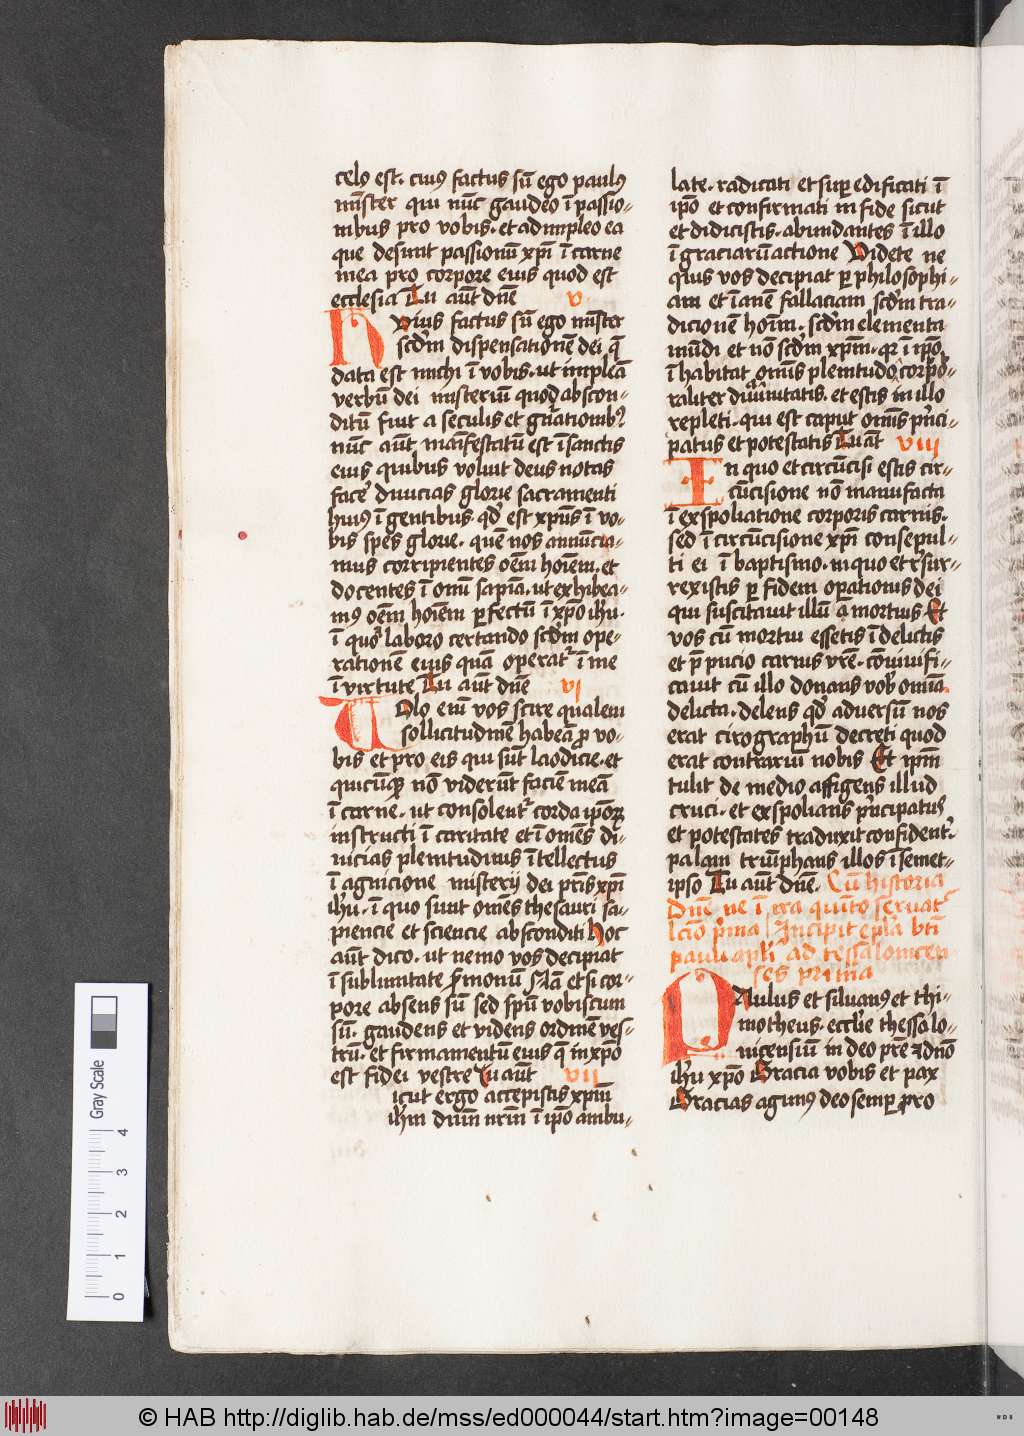 celꝰ est. cuiꝰ factus sū ego paulꝰ
mīster qui nūc gaudeo ī passio-
nibus pro vobis. et adimpleo ea
que desunt passionū xp̄i ī carne
mea pro corpore eius quod est
ecclesia Tu aūt dn̄e v
Cuius factus sū ego mīster
scd̄m dispensationē dei q̄
data est michi ī vobis. ut impleā
verbū dei misteriū quod abscon-
ditū fuit a seculis et gn̄ationibꝰ
nūc aūt manifestatū est ī sanctis
eius quibus voluit deus notas
facē divicias glorie sacramenti
huiꝰ ī gentibus. qd̄ est xp̄us ī vo-
bis spes glorie. quē nos annūcia-
mus corripientes oēm hoīem. et
docentes ī omī sapīa. ut exhibea-
mꝰ oēm hoīem perfectū ī xp̄o ih̄u.
ī quo laboro certando scd̄m ope-
rationē eius quā operatr̄ ī me
ī virtute Tu aūt dn̄e vi
Volo eī vos scire qualem
sollicitudinē habeā p vo-
bis et pro eis qui sūt laodicie. et
quicūqꝫ nō viderūt faciē meā
ī carne. ut consolentr̄ corda ip̄oꝝ
instructi ī caritate et ī omēs di-
vicias plenitudinis ītellectus
ī agnicione misterij dei pr̄is xp̄i
ih̄u. ī quo sunt omēs thesauri sa-
piencie et sciencie absconditi hoc
aūt dico. ut nemo vos decipiat
ī sublimitate s̄monū Nā et si cor-
pore absens sū sed sp̄u vobiscum
sū. gaudens et videns ordinē ves-
trū. et firmamentū eius q̄ in xp̄o
est fidei vestre Tu aūt vii
icut ergo accepistis xp̄m
ih̄m dnm̄ nrm̄ ī ip̄o ambu-
late. radicati et superedificati ī
ip̄o et confirmati in fide sicut
et didicistis. abundantes ī illo
ī graciarū actione Videte ne
quis vos decipiat per philosophi-
am et īanē fallaciam scd̄m tra-
dicionē hoīm. scd̄m elementa
mūdi et nō scd̄m xp̄m. qr ī ip̄o
īhabitat omīs plenitudo corpo-
raliter divinitatis. et estis in illo
repleti. qui est caput omīs prīci-
patus et potestatis Tu aūt viii
In quo et circūcisi estis cir-
cūcisione nō manufacta
ī exspoliatione corporis carnis.
sed ī circūcisione xp̄i consepul-
ti ei ī baptismo. in quo et rsur-
rexistis per fidem operationis dei
qui suscitavit illū a mortuis Et
vos cū mortui essetis ī delictis
et p̄pucio carnis vrē. cōvivifi-
cavit cū illo donans vob̄ omīa
delicta. delens qd̄ adversū nos
erat cirographū decreti quod
erat contrariū nobis Et ip̄m
tulit de medio affigens illud
cruci. et exspolians prīcipatus
et potestates traduxit confidentr̄
palam triūphans illos ī semet-
ipso Tu aūt dn̄e. Cū historia
Dn̄e ne ī ira quīto servatr̄
lcīo prīma Incipit epl̄a btī
pauli apl̄i ad tessalonicen
ses prima
Paulus et silvanꝰ et thi-
motheus. eccl̄ie thessalo-
nicensiū in deo prē et dn̄o
ih̄u xp̄o Gracia vobis et pax
Gracias agimꝰ deo semper pro
Gray Scale
0 1 2 3 4
© HAB http://diglib.hab.de/mss/ed000044/start.htm?image=00148